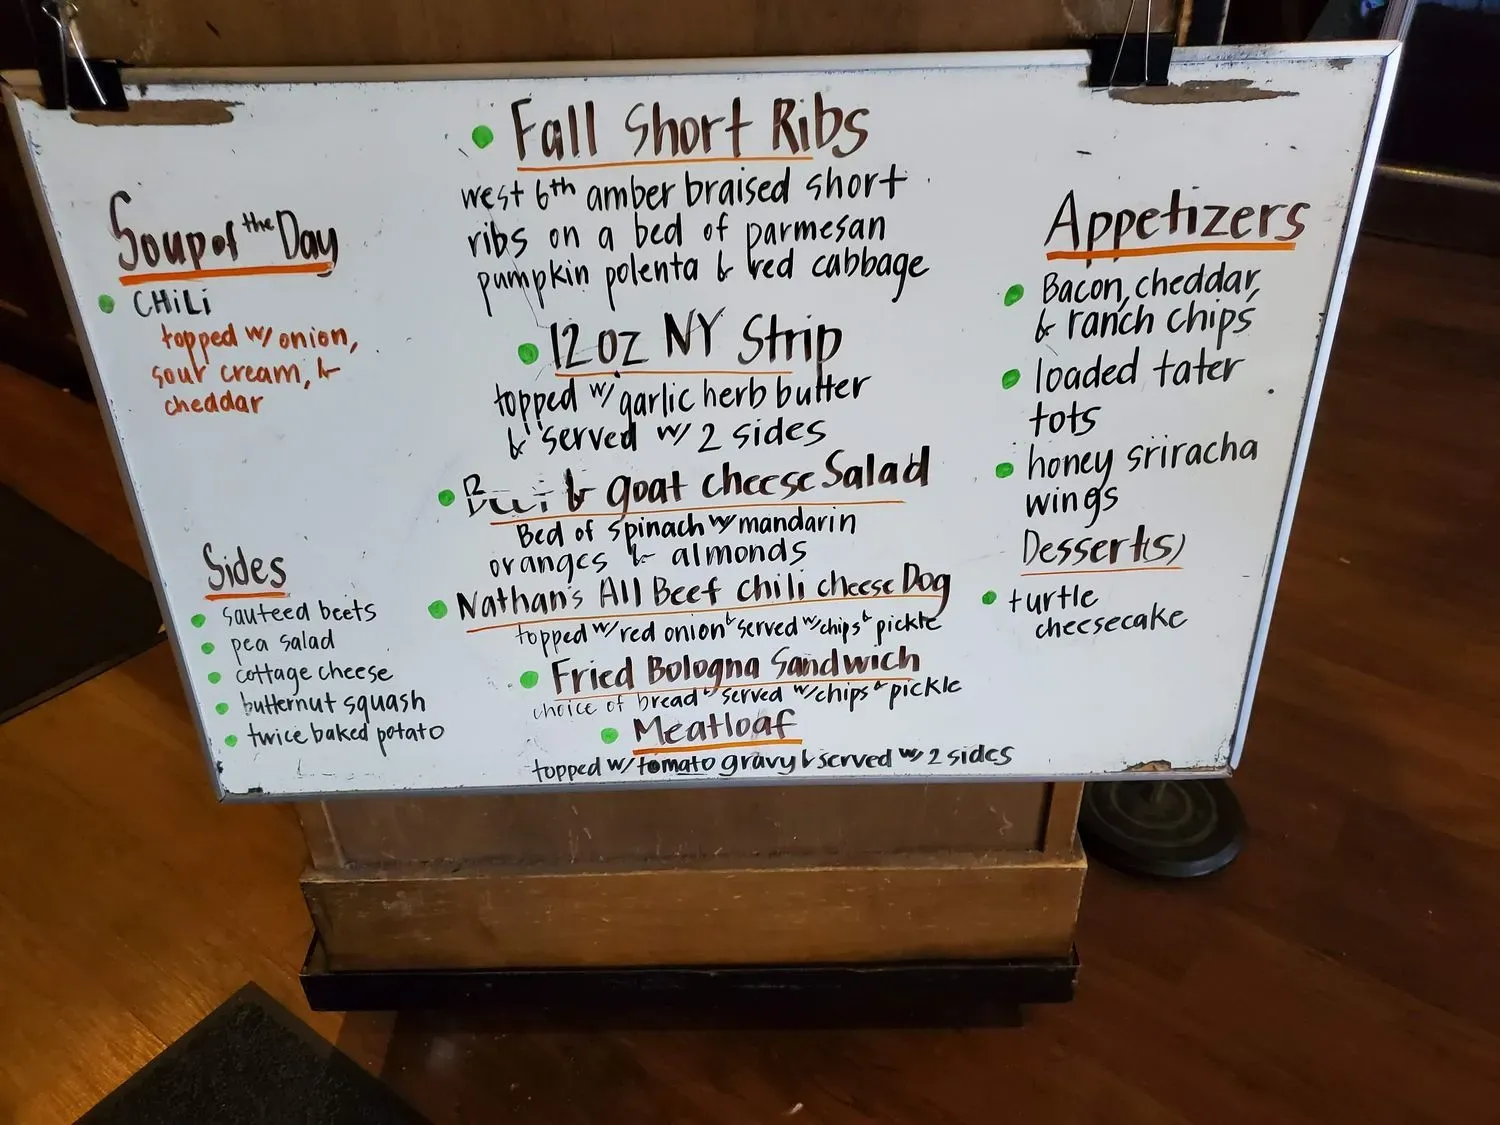 Soup of the Day
CHiLi
topped w/ onion,
sour cream, &
cheddar
Sides
sauteed beets
pea salad
cottage cheese
butternut squash
twice baked potato
Fall Short Ribs
west 6th amber braised short
ribs on a bed of parmesan
pumpkin polenta & red cabbage
12 oz NY Strip
topped w/ garlic herb butter
& served w/ 2 sides
& goat cheese Salad
Bed of spinach w/ mandarin
oranges & almonds
Nathan's All Beef Chili cheese Dog
topped w/ red onion & served w/ chips & pickle
Fried Bologna Sandwich
choice of bread & served w/ chips & pickle
Meatloaf
topped w/ tomato gravy & served w/ 2 sides
Appetizers
Bacon, cheddar,
& ranch chips
loaded tater
tots
honey sriracha
wings
Dessert(s)
turtle
cheesecake